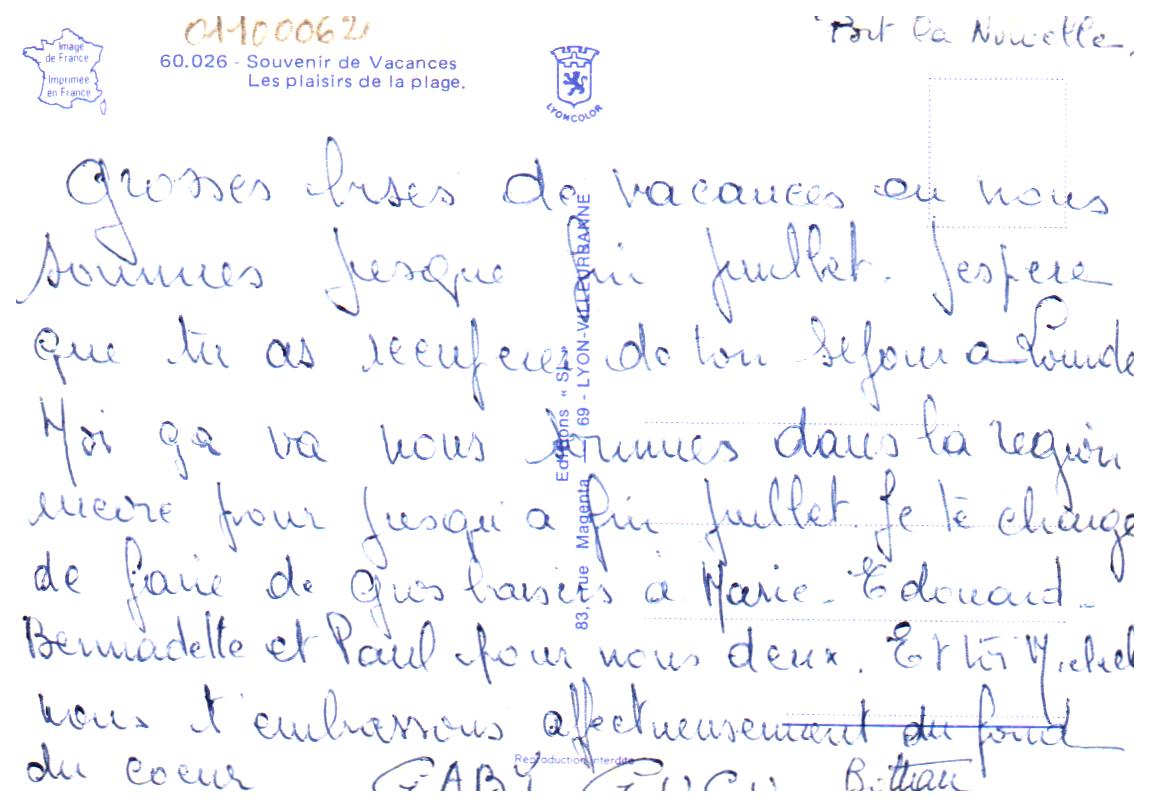 01100062
Port la Nouvelle.
Image
de France
Imprimée
en France
60.026 - Souvenir de Vacances
Les plaisirs de la plage.
LYONCOLOR
Grosses bises de vacances ou nous
sommes jusque fin juillet. J'espere
que tu as recuperer de ton sejour a Lourde
Moi ça va nous sommes dans la region
encore pour jusqu'a fin juillet. Je te charge
de faire de gros baisers a Marie-Edouard-
Bernadette et Paul pour nous deux. Et toi Michel
nous t'embrassons affectueusement du fond
du coeur GABY
Editions « SL »
83, rue Magenta 69 - LYON-VILLEURBANNE
Reproduction interdite